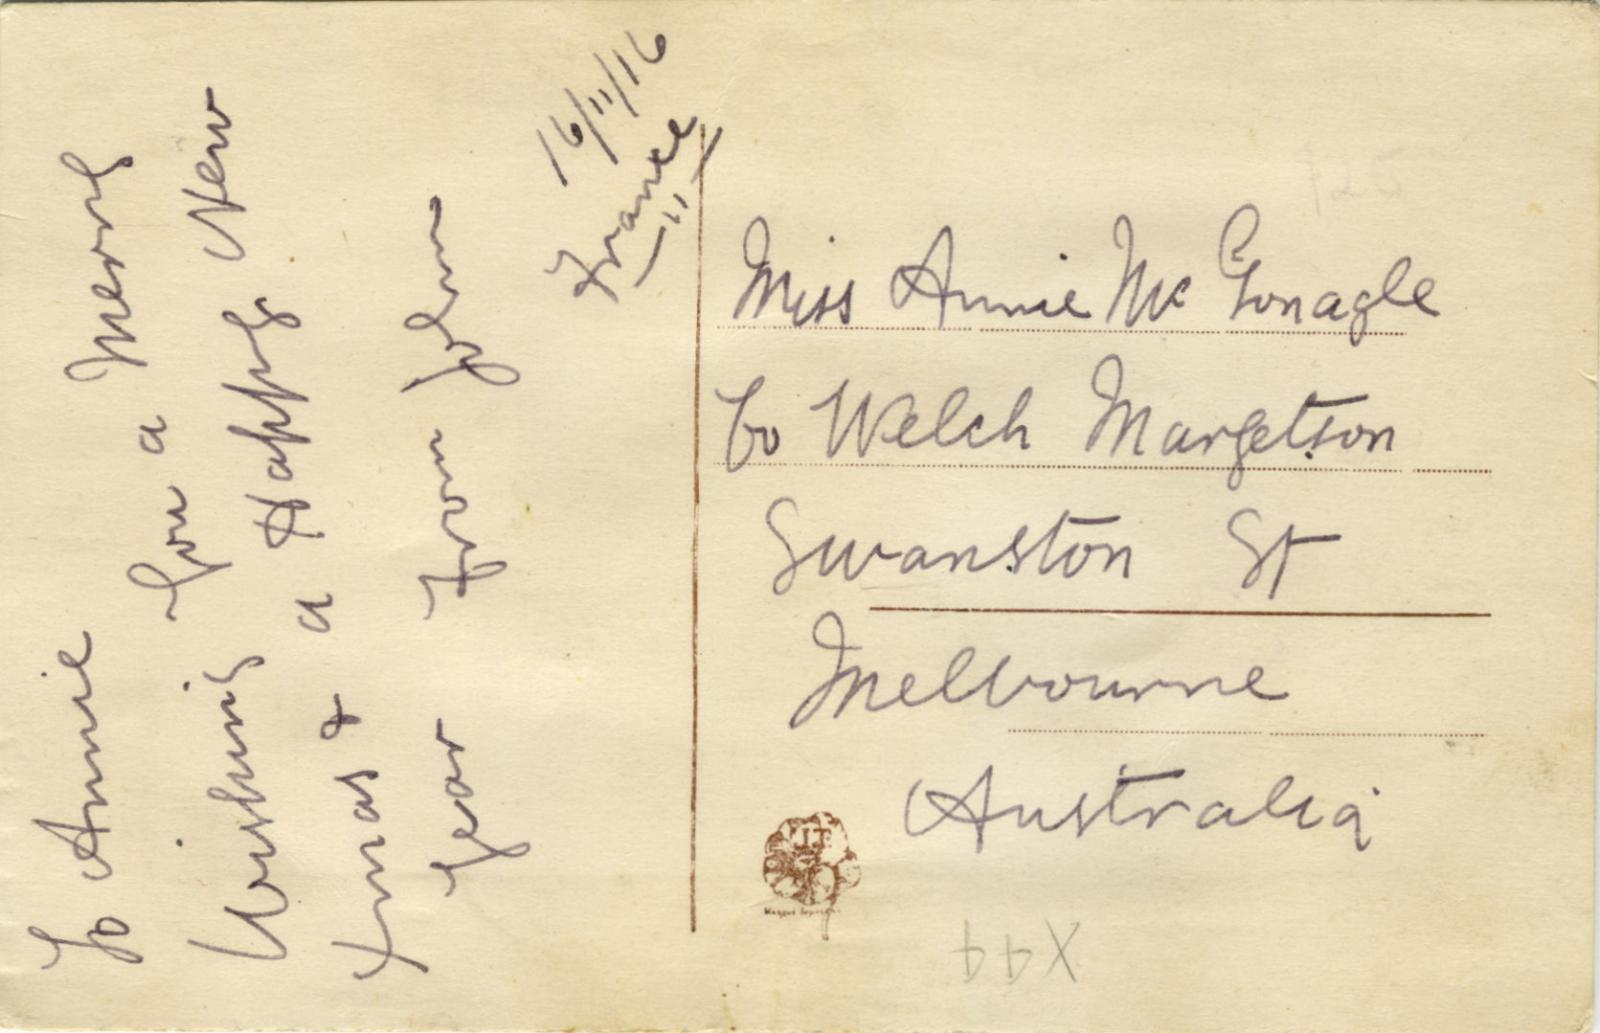 16/11/16
France
To Annie
Wishing you a Merry
Xmas & a Happy New
Year from John
Miss Annie McGonagle
Co Welch Margetson
Swanston St
Melbourne
Australia
J.T.
X44
125